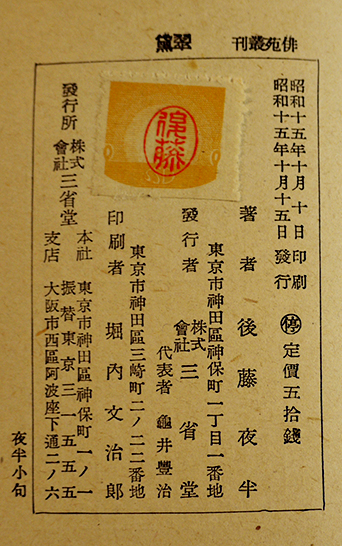 俳苑叢刊 翠黛
昭和十五年十月十日印刷
昭和十五年十月十五日發行
㊡定價五拾錢
著者 後藤夜半
東京市神田區神保町一丁目一番地
發行者 株式會社三省堂
代表者 龜井豐治
東京市神田區三崎町二ノ二二番地
印刷者 堀內文治郎
後藤
發行所 株式會社三省堂
本社 東京市神田區神保町一ノ一
振替東京三一五五五
支店 大阪市西區阿波座下通二ノ六
夜半小句